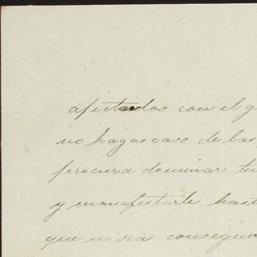 afectadas con el g
no hagas caso de las
procura dominar tu
y manifestarle hast
que no sea consegui